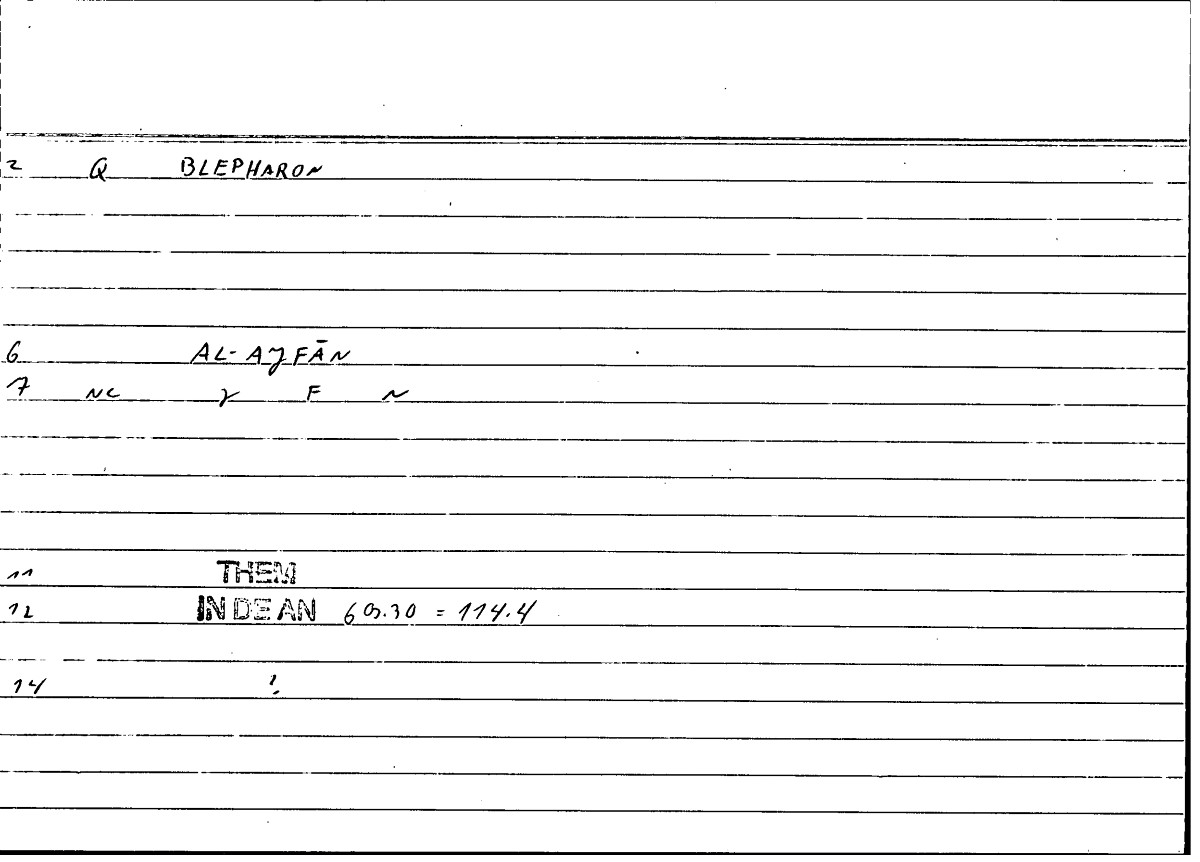 2 Q BLEPHARON
6 AL-AJFĀN
7 NC J F N
11 THEM
12 IN DE AN 69.30 = 114.4
14